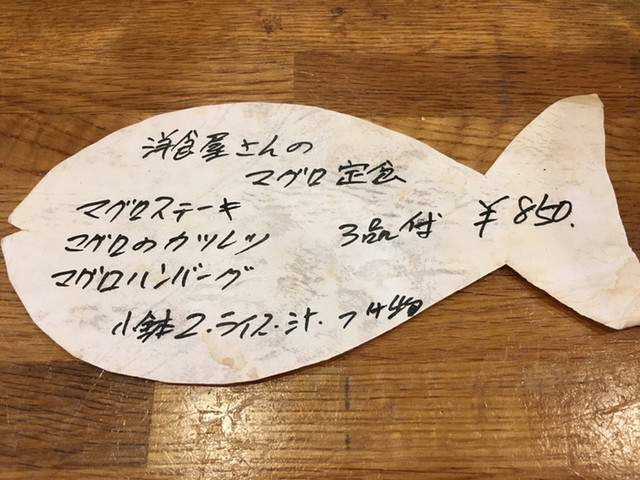 洋食屋さんの
マグロ定食
マグロステーキ
マグロのカツレツ
マグロハンバーグ
3品付
¥850.
小鉢2.ライス.汁.つけ物